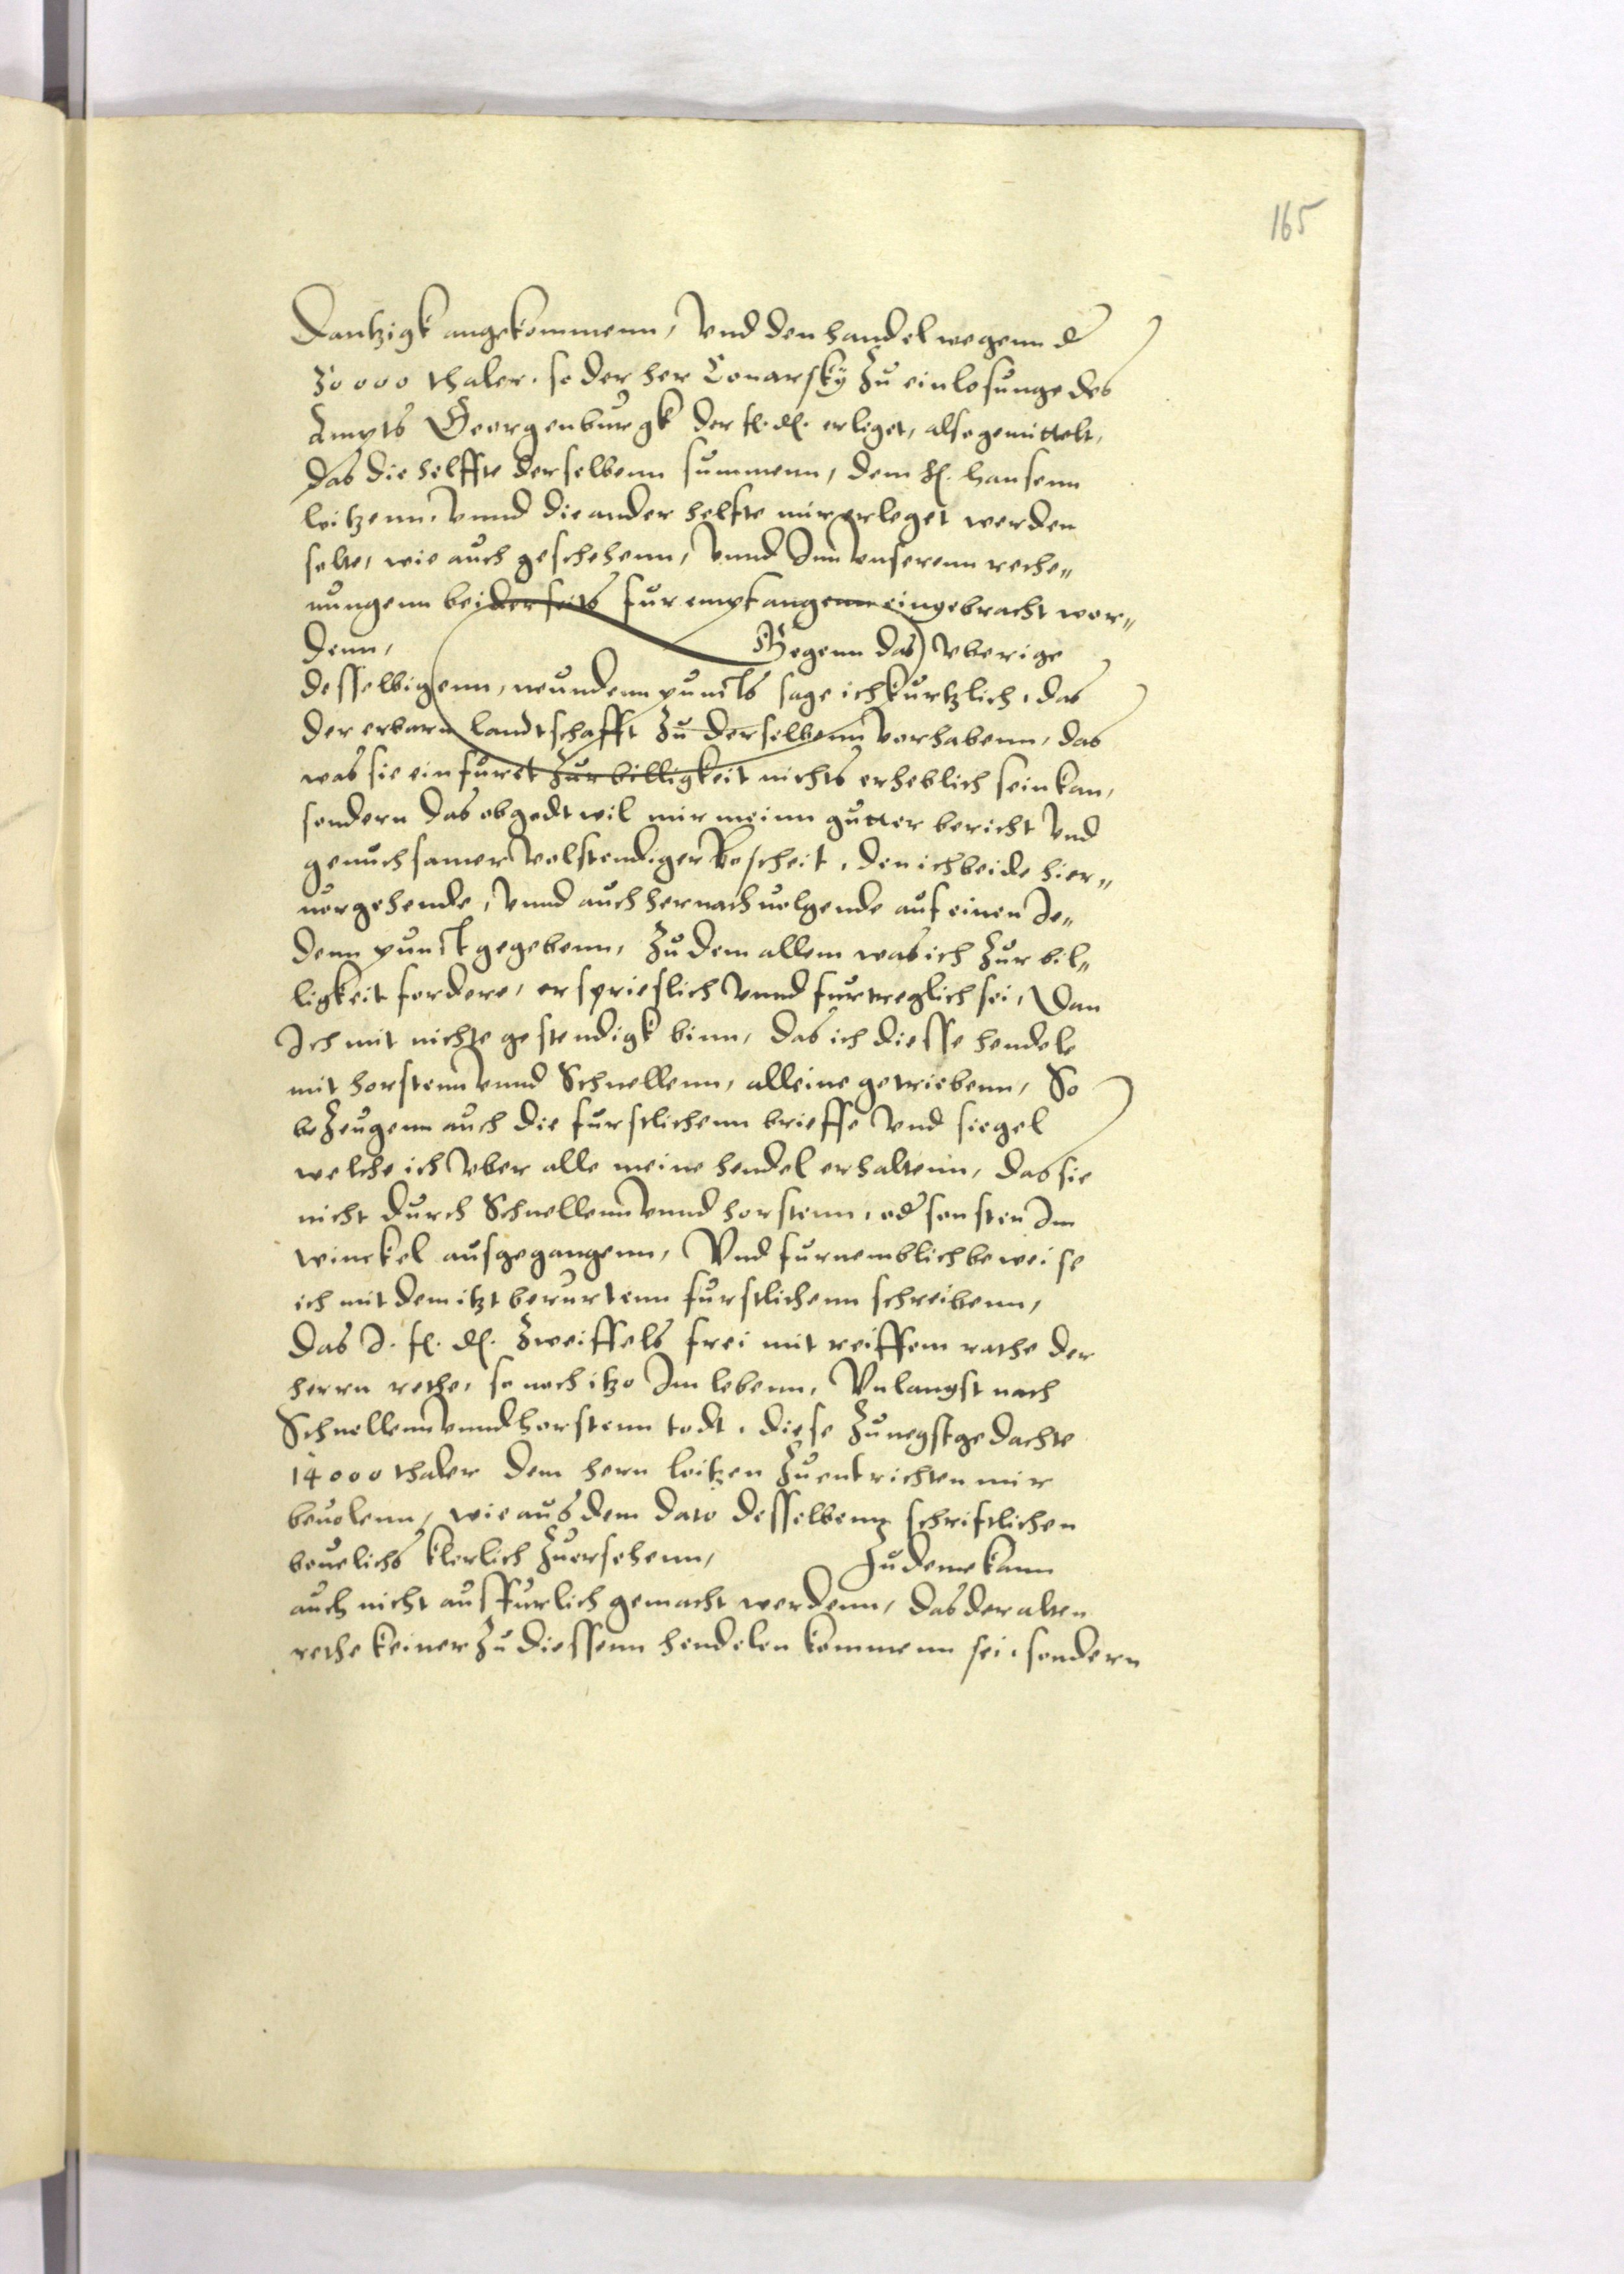 165
Dantzigk angekommenn, Vnd den handel wegenn d
30000 thaler. so der her Conarsky Zu einlosunge des
Ampts Georgenburgk der f. d. erleget, also gemittelt,
das die helffte derselbenn summenn, dem H. Hansenn
leitzenn, Vnnd die ander helfte mir erleget werden
solte, wie auch geschehenn, Vnnd Inn Vnserenn reche„
nungenn beiderseits fur empfangenn eingebracht wor„
denn, Gegenn das Vberige
desselbigenn, neundenn puncts sage ich kurtzlich, das
der erbarn landtschafft Zu derselbenn Vorhabenn, das
was sie einfuret Zur billigkeit nichts erheblich sein kan,
sondern das obgedt wil mir meinn gutter bericht Vnd
genuchsamer Volstendiger bescheit, den ich beide hier„
uorgehende, Vnnd auch hernachuolgende auf einen Je„
denn punct gegebenn, Zu dem allem was ich Zur bil„
ligkeit fordere, ersprieslich Vnnd furtreglich sei, Dan
Ich mit nichte gestendigk binn, das ich diesse hendele
mit horstenn Vnnd Schnellenn, alleine getriebenn, So
beZeugenn auch die furstlichenn brieffe Vnd siegel
welche ich Vber alle meine hendel erhaltenn, das sie
nicht durch Schnellenn Vnnd horstenn, od sonsten Im
winckel ausgegangenn, Vnd furnemblich beweise
ich mit dem itzt berurtenn furstlichenn schreibenn,
das I. f. d. Zweiffels frei mit reiffem rathe der
herrn rethe, so noch itzo Im lebenn, Vnlangst nach
Schnellenn Vnnd horstenn todt, diese Zunegst gedachte
14000 thaler dem hern leitzen Zuentrichten mir
beuolenn, wie aus dem dato desselbenn schriftlichen
beuelichs klerlich Zuersehenn, Zu deme kann
auch nicht ausfurlich gemacht werdenn, das der alten
rethe keiner Zu diessenn hendelen kommenn sei, sondern